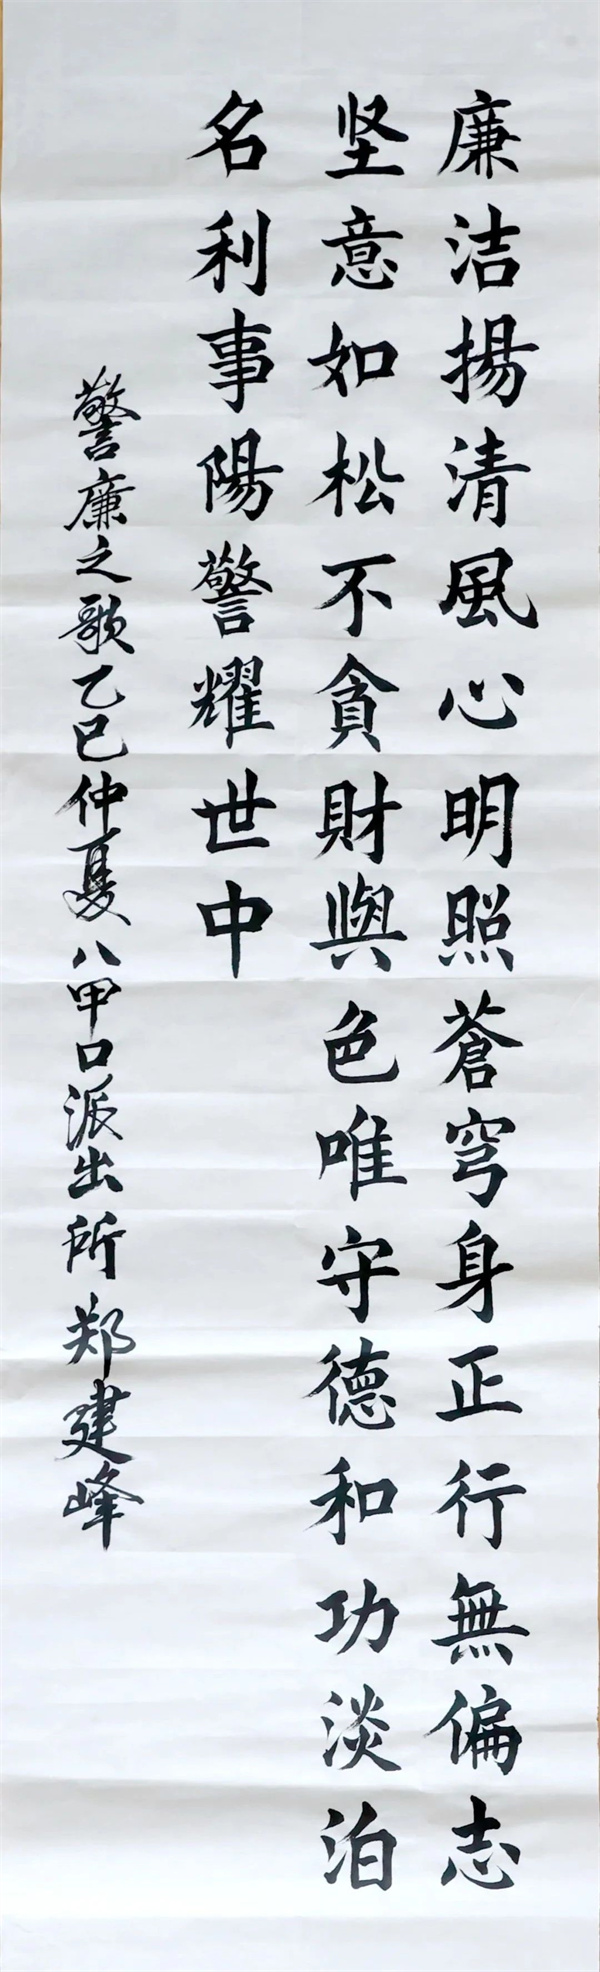 廉洁揚清風心明照蒼穹身正行無偏志
坚意如松不貪財與色唯守德和功淡泊
名利事陽警耀世中
警廉之歌乙巳仲夏八甲口派出所郑建峰